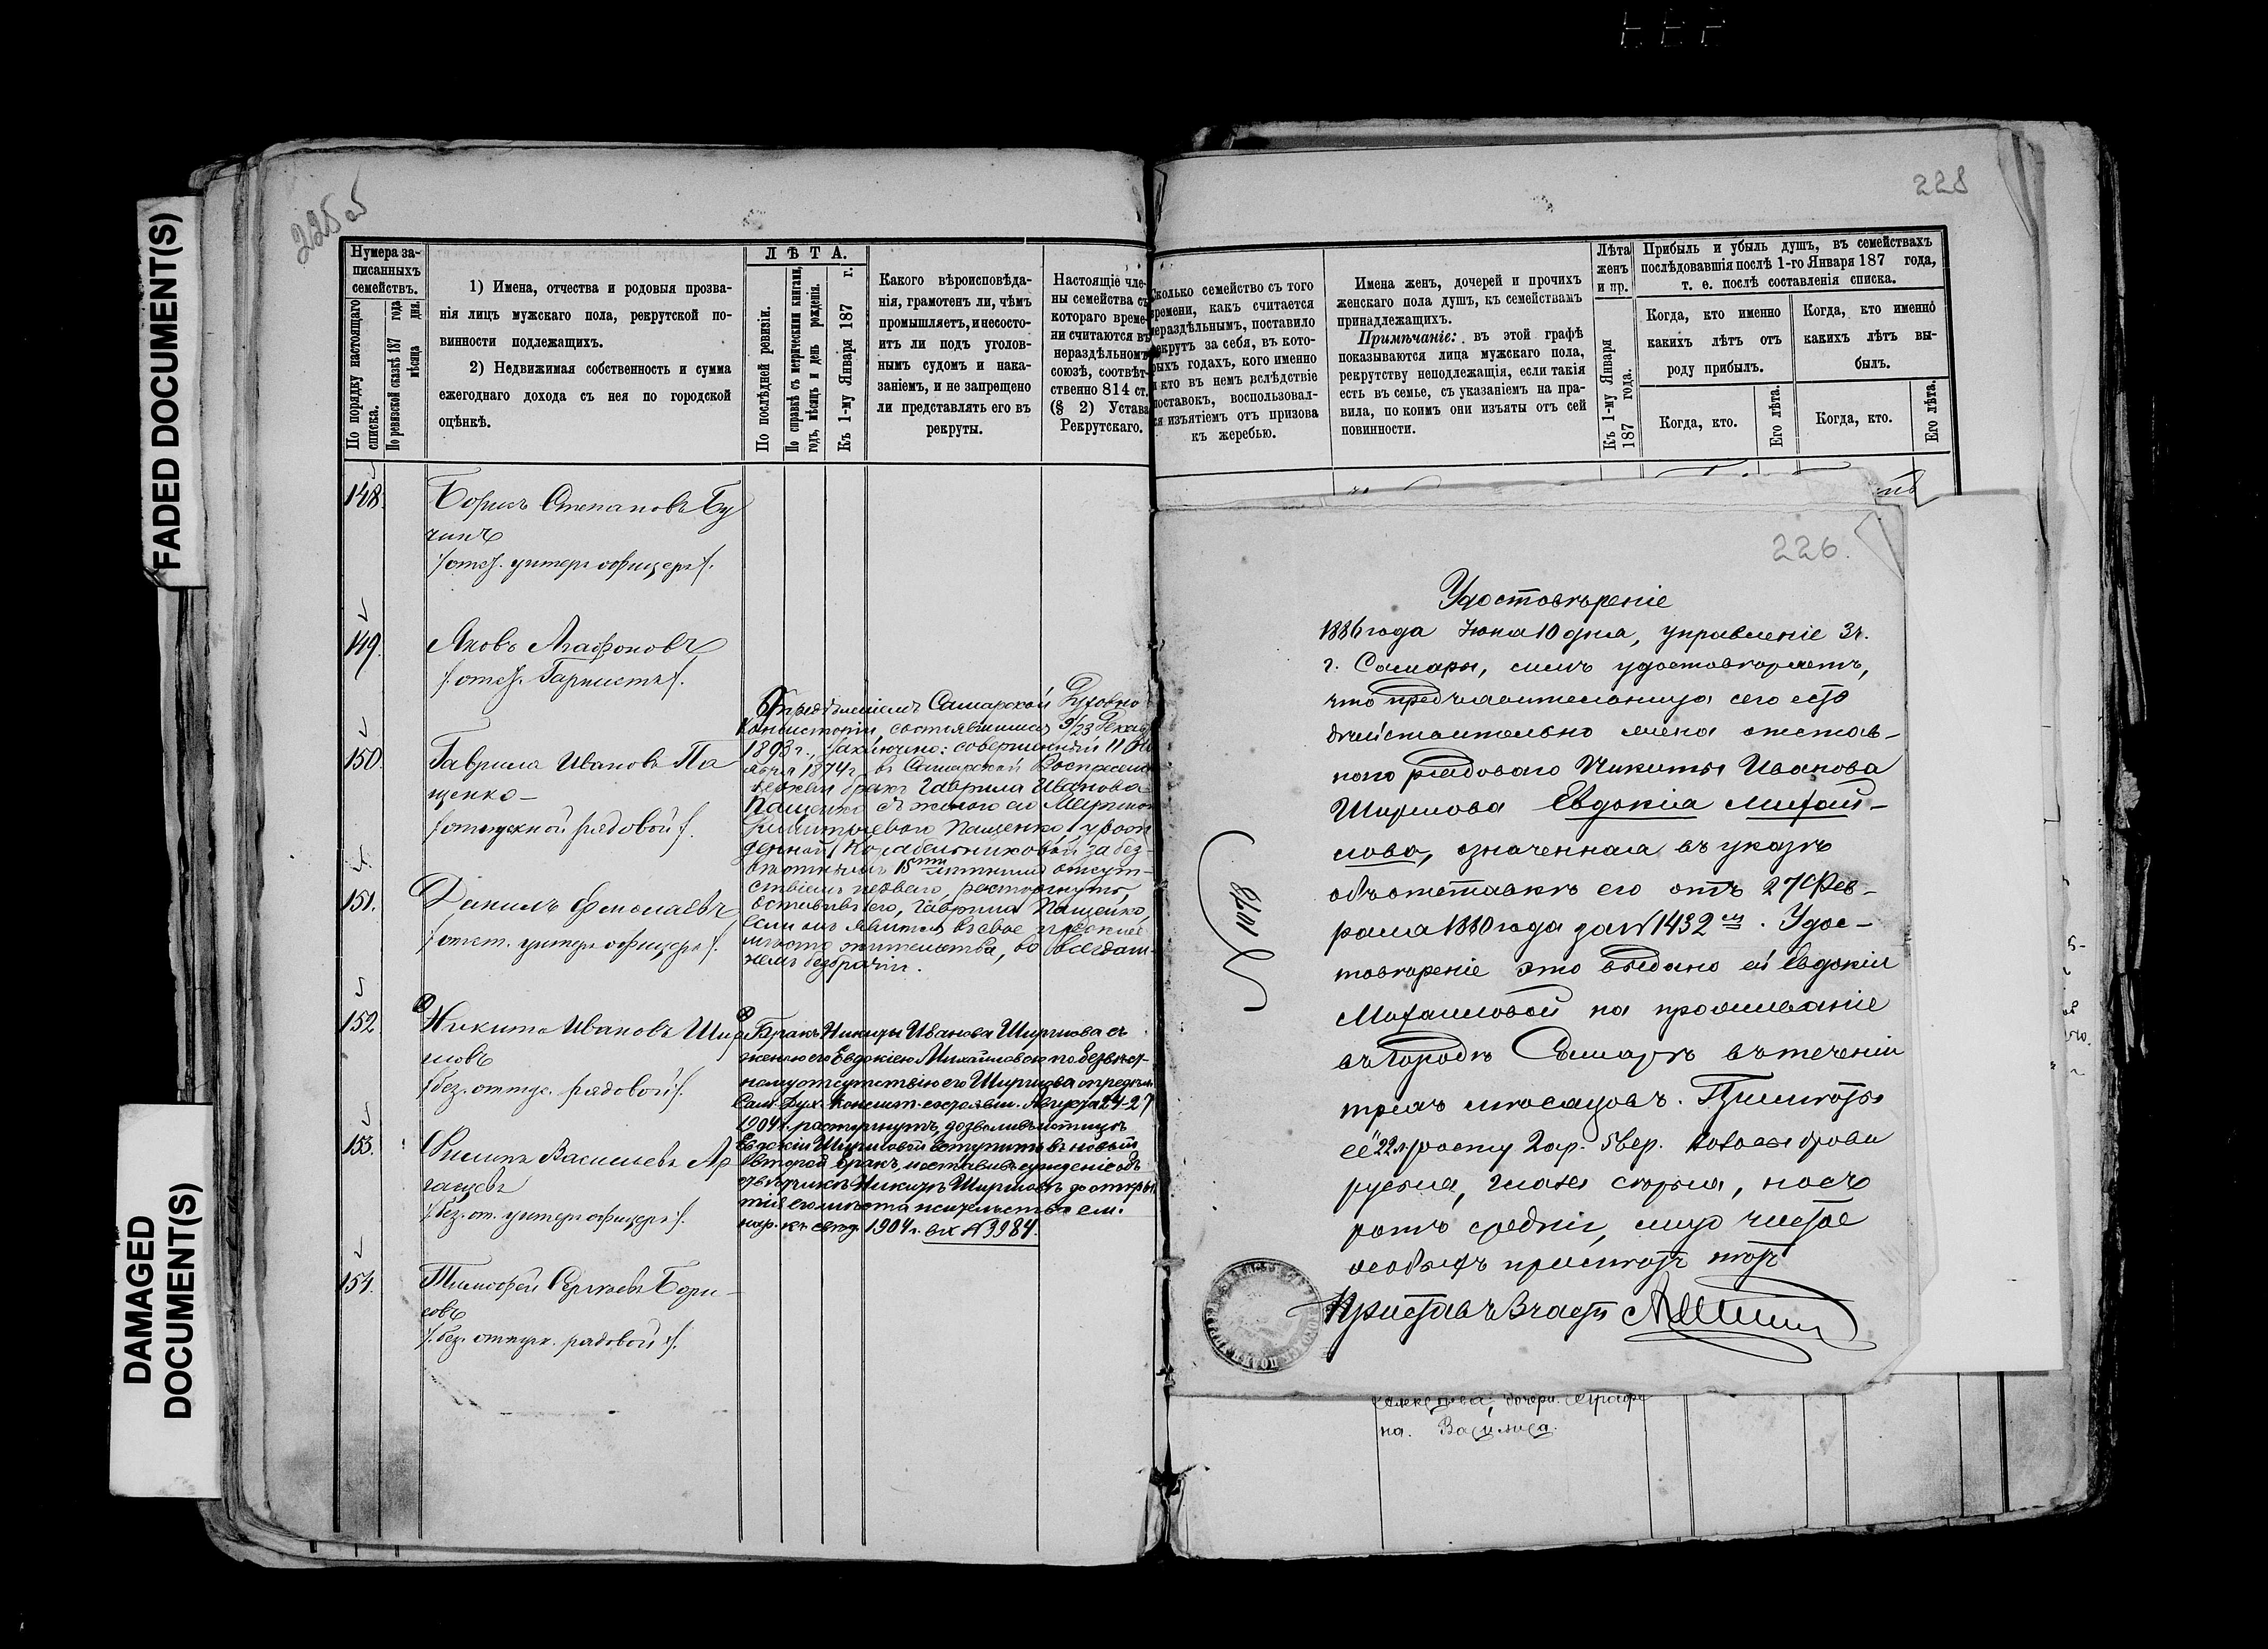 FADED DOCUMENT(S)
DAMAGED
DOCUMENT(S)
225 об
Нумера за-
писанныхъ
семействъ.
По порядку настоящаго
списка.
По ревизской сказкѣ 187 года
мѣсяца дня.
1) Имена, отчества и родовыя прозва-
нія лицъ мужскаго пола, рекрутской по-
винности подлежащихъ.
2) Недвижимая собственность и сумма
ежегоднаго дохода съ нея по городской
оцѣнкѣ.
ЛѢТА.
По послѣдней ревизіи.
По справкѣ съ метрическими книгами,
годъ, мѣсяцъ и день рожденія.
Къ 1-му Января 187 г.
Какого вѣроисповѣда-
нія, грамотенъ ли, чѣмъ
промышляетъ, и несосто-
итъ ли подъ уголов-
нымъ судомъ и нака-
заніемъ, и не запрещено
ли представлять его въ
рекруты.
Настоящіе чле-
ны семейства съ
котораго време-
ни считаются въ
нераздѣльномъ
союзѣ, соотвѣт-
ственно 814 ст.
(§ 2) Устава
Рекрутскаго.
148.
Борисъ Степановъ Бу
чинъ
/отст. унтеръ офицеръ/.
149.
Яковъ Агафоновъ
/отст. Горнистъ/.
150.
Гаврила Ивановъ Па
щенко
/отпускной рядовой/.
151.
Данилъ
/отст. унтеръ офицеръ/.
152.
Никита Ивановъ Шир
шовъ
/без. отпус. рядовой/.
153.
Филипъ Васильевъ Ар
/без. от. унтеръ офицеръ/.
154.
Тимофей Сергѣевъ Бори-
совъ
/без. отпуск. рядовой/.
Опредѣленіемъ Самарской Духовной
Консисторіи, состоявшимся 9/23 Декаб
1893 г., заключено: совершенный 11 Но
ября 1874 г. въ Самарской Воскресенс
церкви бракъ Гаврила Иванова
Пащенко съ женою его
Пащенко /урож
денной за без-
вѣстнымъ 15 лѣтнимъ отсут-
ствіемъ перваго, расторгнуть,
оставивъ его, Гаврила Пащенко,
если онъ явится въ свое прежнее
мѣсто жительства, во всегдаш-
немъ безбрачіи.
Бракъ Никиты Иванова Ширшова съ
женою его Евдокіею Михайловою по безвѣст-
ному отсутствію его Ширшова опредѣл.
Сам. Дух. Консист. состоявш. Августа 24-27
1904 г. расторгнутъ, дозволивъ истицѣ
Евдокіи Ширшовой вступить въ новый
второй бракъ, и оставивъ сужденіе объ
отвѣтчикѣ Никитѣ Ширшовѣ до откры
тія его мѣста жительства см.
1904 г. вх № 3984.
228
Сколько семейство съ того
времени, какъ считается
нераздѣльнымъ, поставило
рекрутъ за себя, въ кото-
рыхъ годахъ, кого именно
и кто въ немъ вслѣдствіе
поставокъ, воспользовал-
ся изъятіемъ отъ призова
къ жеребью.
Имена женъ, дочерей и прочихъ
женскаго пола душъ, къ семействамъ
принадлежащихъ.
Примѣчаніе: въ этой графѣ
показываются лица мужскаго пола,
рекрутству неподлежащія, если такія
есть въ семье, съ указаніемъ на пра-
вила, по коимъ они изъяты отъ сей
повинности.
Лѣта
женъ
и пр.
Къ 1-му Января
187 года.
Прибыль и убыль душъ, въ семействахъ
послѣдовавшія послѣ 1-го Января 187 года,
т. е. послѣ составленія списка.
Когда, кто именно
какихъ лѣтъ отъ
роду прибылъ.
Когда, кто именно
какихъ лѣтъ вы-
былъ.
Когда, кто.
Его лѣта.
Когда, кто.
Его лѣта.
226.
Удостовѣреніе
1886 года Июня 10 дня, управленіе 3 ч.
г. Самары, симъ удостовѣряетъ,
что предъявительница сего есть
дѣйствительно жена отстав-
ного рядоваго Никиты Иванова
Ширшова Евдокія Михай-
лова, означенная въ указѣ
объ отставкѣ его отъ 27 Фев-
раля 1880 года за № 1432 мъ. Удос-
товѣреніе это выдано ей Евдокіи
Михайловой на проживаніе
въ городѣ Самарѣ въ теченіи
трехъ мѣсяцовъ. Примѣты
ее 22 л. росту 2 ар. 5 вер. волосы брови
русыя, глаза сѣрыя, носъ
ротъ средній, лицо чистое
особыхъ примѣтъ нѣтъ
Приставъ 3 части
дочери
на. Василиса.